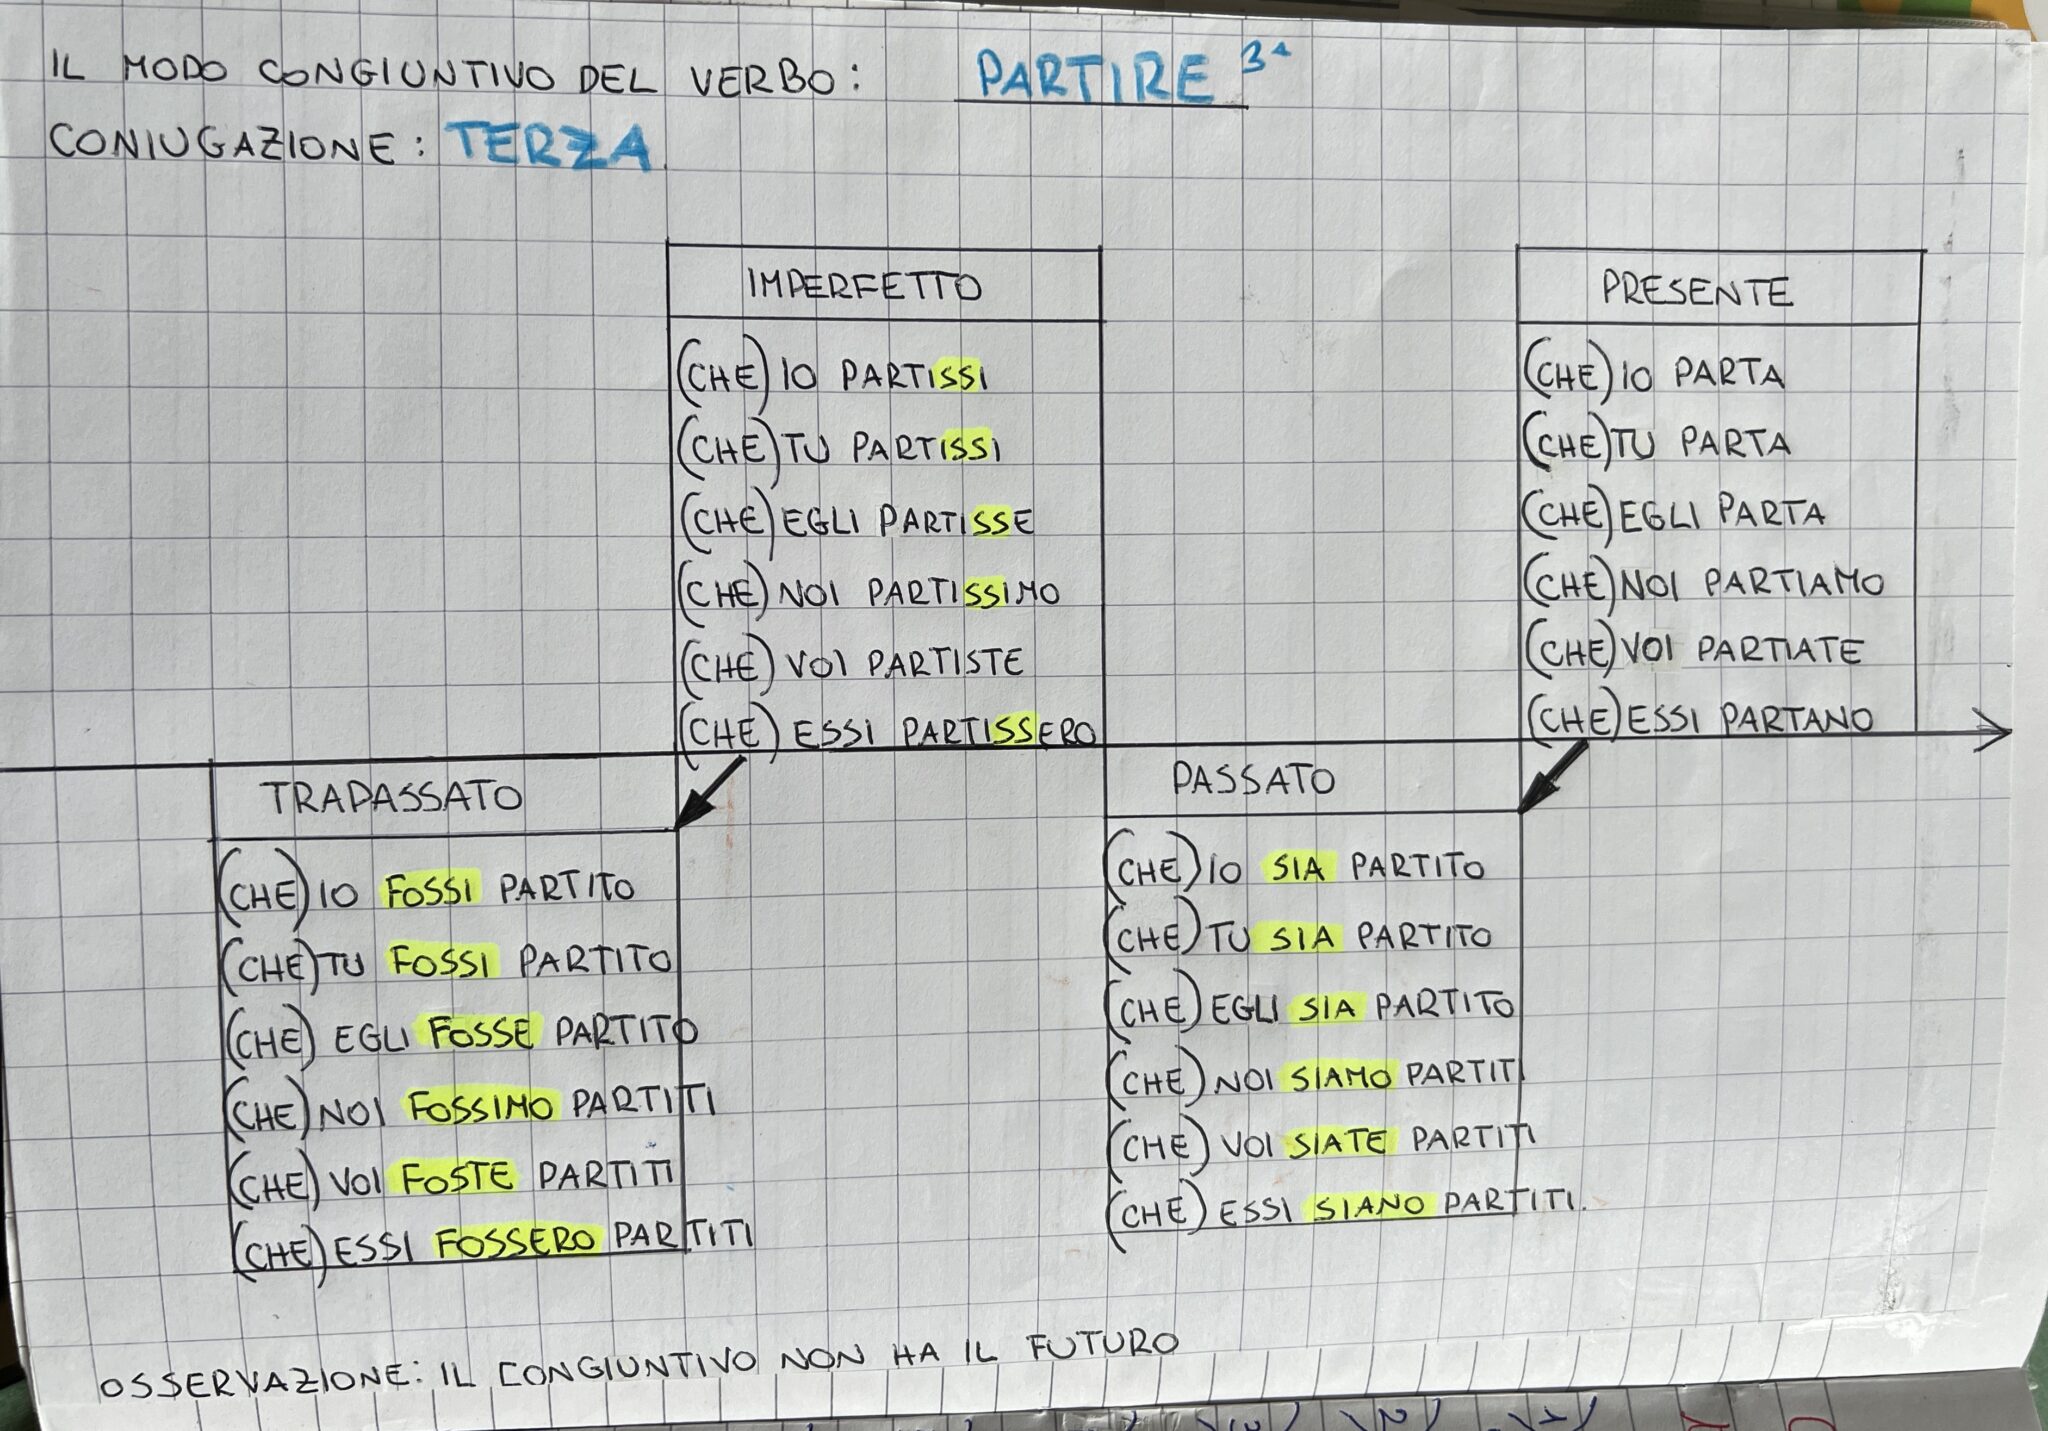 IL MODO CONGIUNTIVO DEL VERBO: PARTIRE 3ª
CONIUGAZIONE: TERZA
IMPERFETTO
(CHE) IO PARTISSI
(CHE) TU PARTISSI
(CHE) EGLI PARTISSE
(CHE) NOI PARTISSIMO
(CHE) VOI PARTISTE
(CHE) ESSI PARTISSERO
PRESENTE
(CHE) IO PARTA
(CHE) TU PARTA
(CHE) EGLI PARTA
(CHE) NOI PARTIAMO
(CHE) VOI PARTIATE
(CHE) ESSI PARTANO
TRAPASSATO
(CHE) IO FOSSI PARTITO
(CHE) TU FOSSI PARTITO
(CHE) EGLI FOSSE PARTITO
(CHE) NOI FOSSIMO PARTITI
(CHE) VOI FOSTE PARTITI
(CHE) ESSI FOSSERO PARTITI
PASSATO
(CHE) IO SIA PARTITO
(CHE) TU SIA PARTITO
(CHE) EGLI SIA PARTITO
(CHE) NOI SIAMO PARTITI
(CHE) VOI SIATE PARTITI
(CHE) ESSI SIANO PARTITI.
OSSERVAZIONE: IL CONGIUNTIVO NON HA IL FUTURO